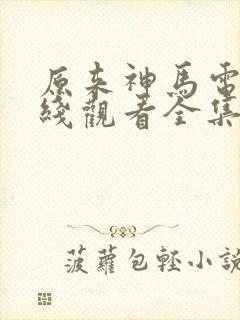 原来神馬電
綫觀看全集
菠蘿包輕小説